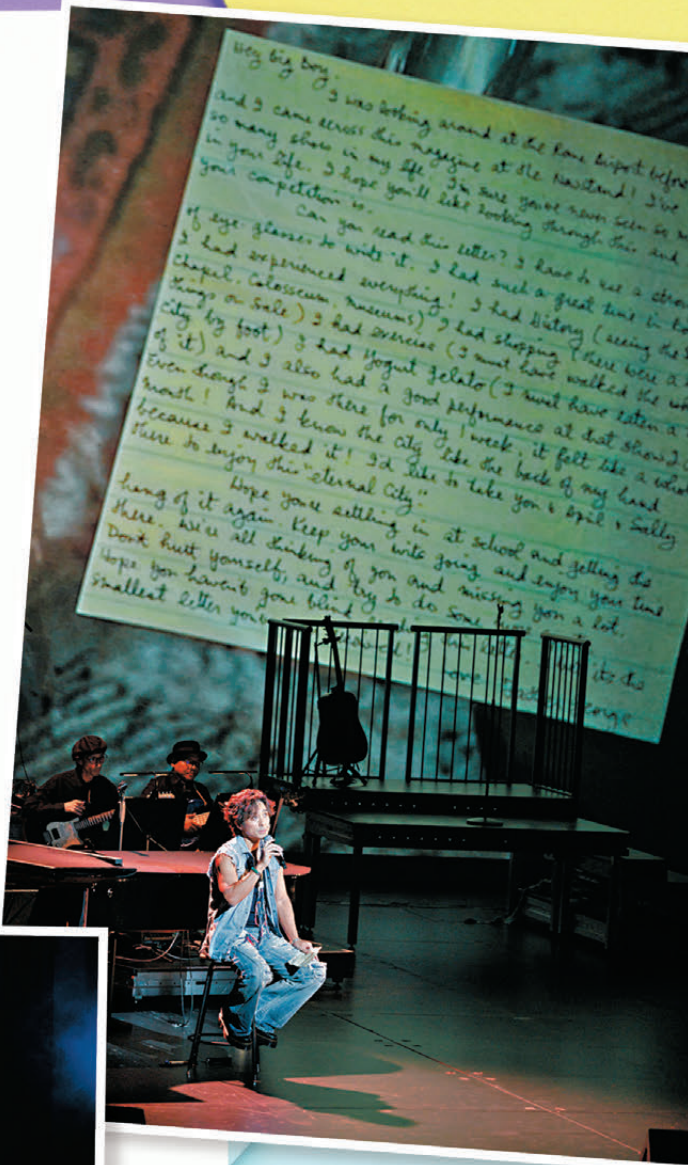 Hey Big Boy.
I was looking around at the Rome Airport before
and I came across this magazine at the Newstand! I've
so many shoes in my life. I'm sure you've never seen so
in your life. I hope you'll like looking through this and
your competition is.
Can you read this letter? I have to use a
of eye-glasses to write it. I had such a great time in
I had experienced everything! I had History (seeing the
Chapel, Colosseum, Museums) I had shopping (there were a
things on sale) I had exercise (I must have walked the
City by foot) I had Yogurt Gelato (I must have eaten a
of it) and I also had a good performance at that show I
Even though I was there for only 1 week, it felt like a whole
month! And I know the city like the back of my hand
because I walked it! I'd like to take you & April & Sally
there to enjoy this "eternal City".
Hope you're settling in at school and getting the
hang of it again. Keep your wits going and enjoy your time
there. We're all thinking of you and missing you a lot.
Don't hurt yourself, and try to do some
Hope you haven't gone blind
smallest letter you its the